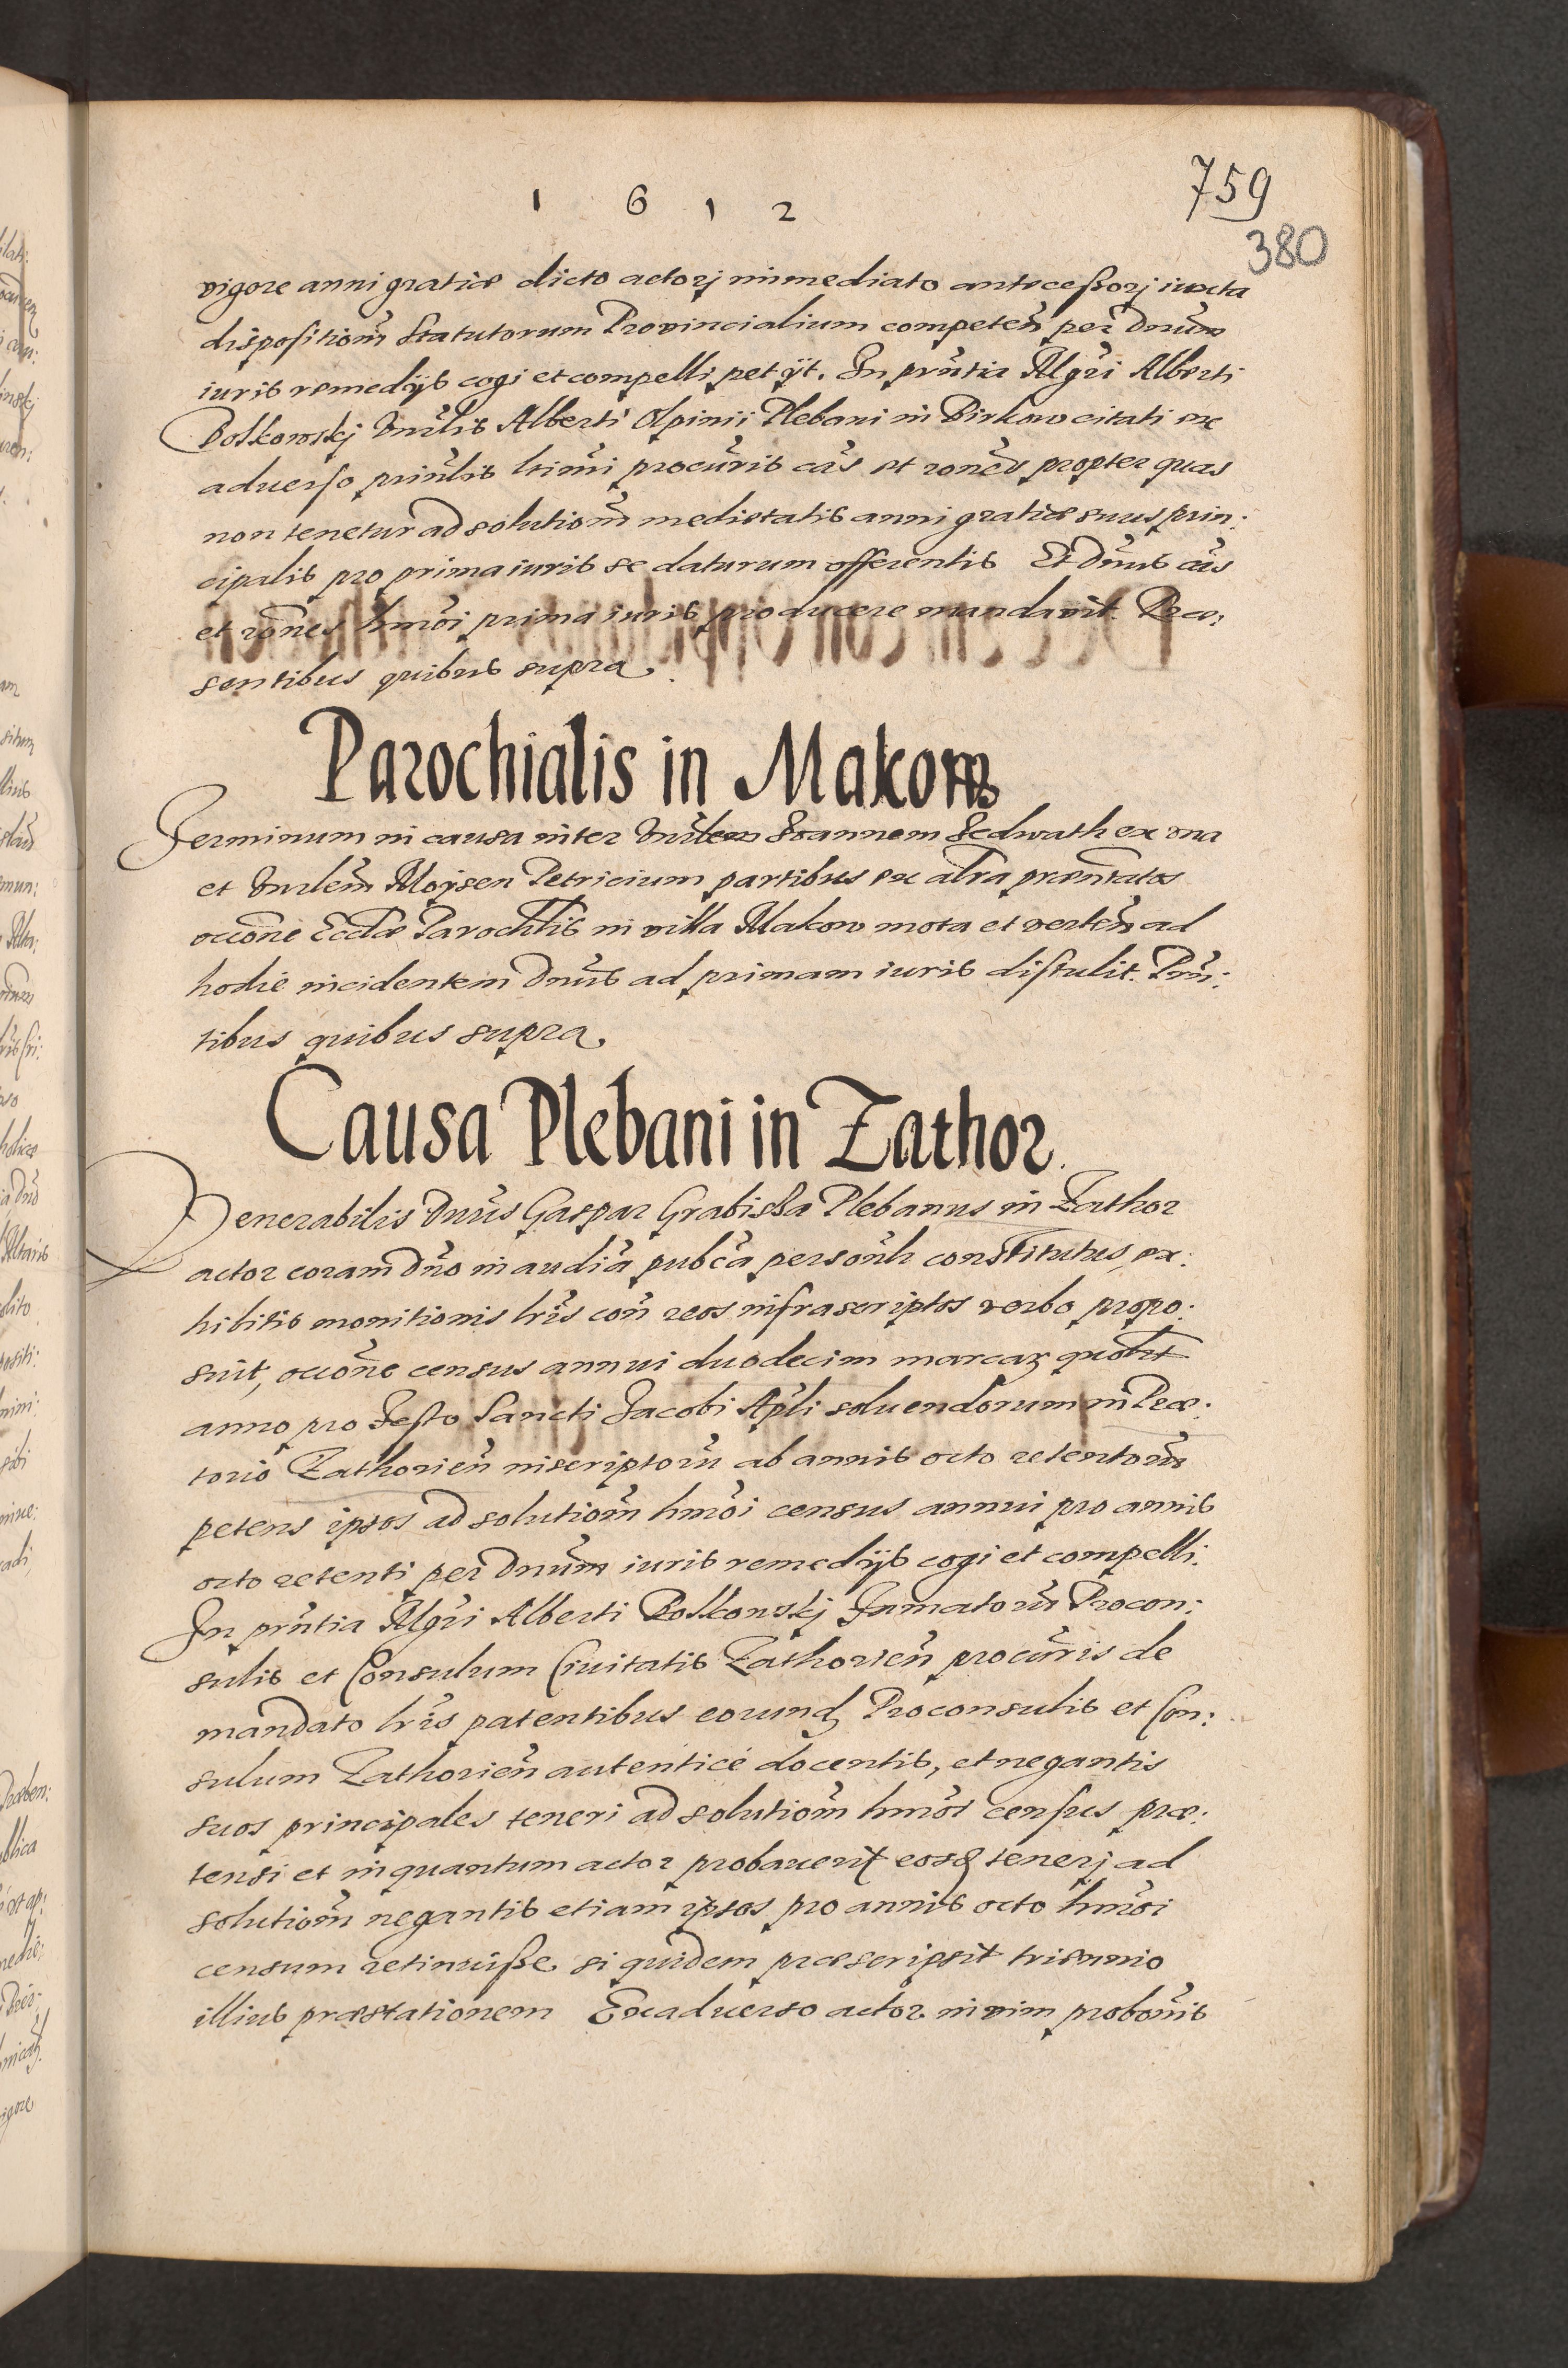 1 6 1 2
759
380
vigore anni gratiæ dicto actorj immediato antecessorj iuxta
dispositiom̃ Statutorum Prouincialium competeñ per Dnum̃
iuris remedijs cogi et compelli petijt. In prñtia Mgr̃i Alberti
Polkowskj Vnr̃lis Alberti Olpinii Plebani in Birkow citati ex
aduerso prinl̃is ltimi procur̃is cãs et rones propter quas
non tenetur ad solutiom̃ medietatis anni gratiæ suus prin:
cipalis pro prima iuris se daturum offerentis Et Dnus cãs
et rõnes hmõi prima iuris producere mandauit. Præ:
sentibus quibus supra.
Parochialis in Makow
Terminum in causa inter Vnr̃lem Ioannem Sedwath ex vna
et Vnr̃lem̃ Moysen Petricium partibus ex alt̃ra præntatos
occõne Eccl̃æ Parochl̃is in villa Makow mota et verteñ ad
hodie incidentem Dnũs ad primam iuris distulit. Prñ:
tibus quibus supra.
Causa Plebani in Zathor.
Venerabilis Dnũs Gaspar Grabissa Plebanus in Zathor
actor coram Dño in audiã pubcã personl̃r constitutus, ex:
hibitis monitionis lr̃is coñ reos infrascriptos verbo propo:
suit, occõne census annui duodecim marcarꝫ quolt̃
anno pro Festo Sancti Jacobi Apl̃i soluendorum in Præ:
torio Zathorieñ inscriptorũ ab annis octo retentorũ
petens ipsos ad solutiom̃ hmõi census annui pro annis
octo retenti per Dnum̃ iuris remedijs cogi et compelli.
In prñtia Mgr̃i Alberti Polkowskj Famatorũ Procon:
sulis et Consulum Ciuitatis Zathorieñ procur̃is de
mandato lr̃is patentibus eorundꝫ Proconsulis et Con:
sulum Zathorieñ autenticé docentis, et negantis
suos principales teneri ad solutiom̃ hmõi census præ:
tensi et inquantum actor probauerit eosdꝫ tenerj ad
solutiom̃ negantis etiam ipsos pro annis octo hmõi
censum retinuisse si quidem præscripsit triennio
illius præstationem Ex aduerso actor in vim probõnis